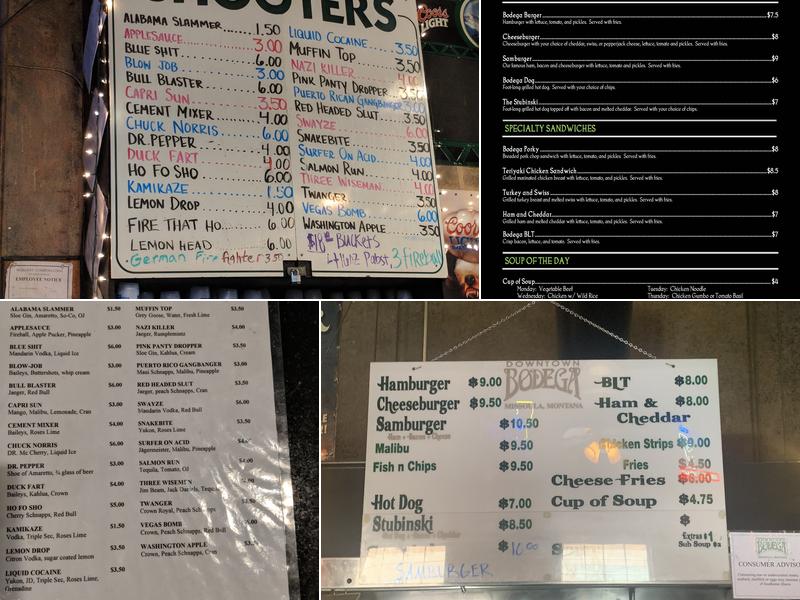 SHOOTERS
ALABAMA SLAMMER 1.50
APPLESAUCE 3.00
BLUE SHIT 6.00
BLOW JOB 3.00
BULL BLASTER 6.00
CAPRI SUN 3.50
CEMENT MIXER 4.00
CHUCK NORRIS 6.00
DR. PEPPER 4.00
DUCK FART 4.00
HO FO SHO 6.00
KAMIKAZE 1.50
LEMON DROP 4.00
FIRE THAT HO 6.00
LEMON HEAD 6.00
German Fire fighter 3.50
LIQUID COCAINE 3.50
MUFFIN TOP 3.50
NAZI KILLER 4.00
PINK PANTY DROPPER 3.50
PUERTO RICAN GANGBANGER 3.00
RED HEADED SLUT 3.50
SWAYZE 6.00
SNAKEBITE 3.50
SURFER ON ACID 4.00
SALMON RUN 4.00
THREE WISEMAN 4.00
TWANGER 3.50
VEGAS BOMB 6.00
WASHINGTON APPLE 3.50
$18 BUCKETS
Pabst, 3 fireball
Coors
LIGHT
Coors
LIGHT
EMPLOYEE NOTICE
Bodega Burger $7.5
Hamburger with lettuce, tomato, and pickles. Served with fries.
Cheeseburger $8
Cheeseburger with your choice of cheddar, swiss, or pepperjack cheese, lettuce, tomato and pickles. Served with fries.
Samburger $9
Our famous ham, bacon and cheeseburger with lettuce, tomato and pickles. Served with fries.
Bodega Dog $6
Foot-long grilled hot dog. Served with your choice of chips.
The Stubinski $7
Foot-long grilled hot dog topped off with bacon and melted cheddar. Served with your choice of chips.
SPECIALTY SANDWICHES
Bodega Porky $8
Breaded pork chop sandwich with lettuce, tomato, and pickles. Served with fries.
Teriyaki Chicken Sandwich $8.5
Grilled marinated chicken breast with lettuce, tomato, and pickles. Served with fries.
Turkey and Swiss $8
Grilled turkey breast and melted swiss with lettuce, tomato, and pickles. Served with fries.
Ham and Cheddar $7
Grilled ham and melted cheddar with lettuce, tomato, and pickles. Served with fries.
Bodega BLT $7
Crisp bacon, lettuce, and tomato. Served with fries.
SOUP OF THE DAY
Cup of Soup $4
Monday: Vegetable Beef Tuesday: Chicken Noodle
Wednesday: Chicken w/ Wild Rice Thursday: Chicken Gumbo or Tomato Basil
ALABAMA SLAMMER $1.50
Sloe Gin, Amaretto, So-Co, OJ
APPLESAUCE $3.00
Fireball, Apple Pucker, Pineapple
BLUE SHIT $6.00
Mandarin Vodka, Liquid Ice
BLOW-JOB $3.00
Baileys, Buttershots, whip cream
BULL BLASTER $6.00
Jaeger, Red Bull
CAPRI SUN $3.00
Mango, Malibu, Lemonade, Cran
CEMENT MIXER $4.00
Baileys, Roses Lime
CHUCK NORRIS $6.00
DR. Mc Cherry, Liquid Ice
DR. PEPPER $3.00
Shoe of Amaretto, ¾ glass of beer
DUCK FART $4.00
Baileys, Kahlua, Crown
HO FO SHO $5.00
Cherry Schnapps, Red Bull
KAMIKAZE $1.50
Vodka, Triple Sec, Roses Lime
LEMON DROP $3.50
Citron Vodka, sugar coated lemon
LIQUID COCAINE $3.50
Yukon, JD, Triple Sec, Roses Lime,
Grenadine
MUFFIN TOP $3.50
Grey Goose, Water, Fresh Lime
NAZI KILLER $4.00
Jaeger, Rumplemintz
PINK PANTY DROPPER $3.50
Sloe Gin, Kahlua, Cream
PUERTO RICO GANGBANGER $3.00
Maui Schnapps, Malibu, Pineapple
RED HEADED SLUT $3.50
Jaeger, peach Schnapps, Cran
SWAYZE $6.00
Mandarin Vodka, Red Bull
SNAKEBITE $3.50
Yukon, Roses Lime
SURFER ON ACID
Jägermeister, Malibu, Pineapple
SALMON RUN
Tequila, Tomato, OJ
THREE WISEMEN
Jim Beam, Jack Daniels,
TWANGER
Crown Royal, Peach Schnapps,
VEGAS BOMB
Crown, Peach Schnapps, Red Bull
WASHINGTON APPLE
Crown, Peach Schnapps, Cran
DOWNTOWN
BODEGA
MISSOULA, MONTANA
Hamburger $9.00
Cheeseburger $9.50
Samburger $10.50
Ham + Bacon + Cheese
Malibu $9.50
Fish n Chips $9.50
Hot Dog $7.00
Stubinski $8.50
$10.00
SAMBURGER
BLT $8.00
Ham & $8.00
Cheddar
Chicken Strips $9.00
Fries $4.50
Cheese Fries $6.00
Cup of Soup $4.75
$
Extras $1
Sub Soup
BODEGA
CONSUMER ADVISO